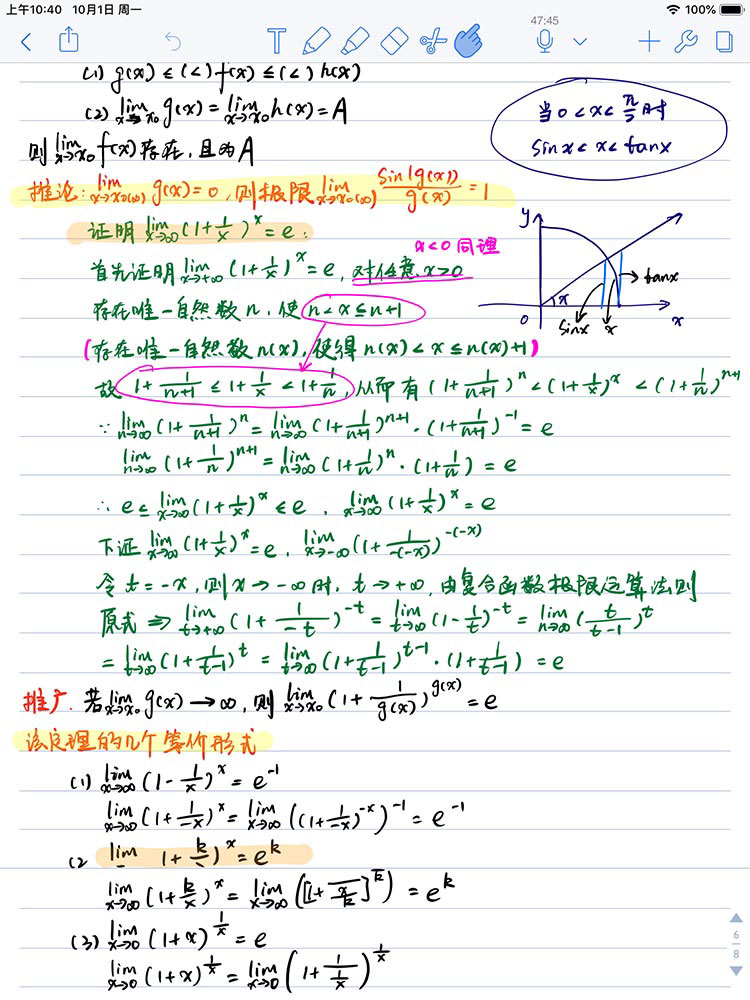 上午10:40 10月1日 周一
100%
47:45
(1) g(x) ≤ (<) f(x) ≤ (<) h(x)
(2) lim x→x₀ g(x) = lim x→x₀ h(x) = A
则 lim x→x₀ f(x) 存在, 且为A
当 0 < x < π/2 时
sinx < x < tanx
推论: lim x→x₀(∞) g(x) = 0, 则极限 lim x→x₀(∞) sin(g(x))/g(x) = 1
证明 lim x→∞ (1+1/x)^x = e:
x<0 同理
首先证明 lim x→+∞ (1+1/x)^x = e, 对任意 x>0
存在唯一自然数n, 使 n<x≤n+1
(存在唯一自然数n(x), 使得 n(x)<x≤n(x)+1)
y
x
tanx
0
sinx
x
x
故 1+1/(n+1) ≤ 1+1/x < 1+1/n, 从而有 (1+1/(n+1))^n < (1+1/x)^x < (1+1/n)^(n+1)
∵ lim n→∞ (1+1/(n+1))^n = lim n→∞ (1+1/(n+1))^(n+1) · (1+1/(n+1))^-1 = e
lim n→∞ (1+1/n)^(n+1) = lim n→∞ (1+1/n)^n · (1+1/n) = e
∴ e ≤ lim x→∞ (1+1/x)^x ≤ e, lim x→∞ (1+1/x)^x = e
下证 lim x→∞ (1+1/x)^x = e, lim x→-∞ (1+1/-(-x))^-(-x)
令 t=-x, 则 x→-∞时, t→+∞, 由复合函数极限运算法则
原式 ⇒ lim t→+∞ (1+1/-t)^-t = lim t→∞ (1-1/t)^-t = lim n→∞ (t/(t-1))^t
= lim t→∞ (1+1/(t-1))^t = lim t→∞ (1+1/(t-1))^(t-1) · (1+1/(t-1)) = e
推广. 若 lim x→x₀ g(x) → ∞, 则 lim x→x₀ (1+1/g(x))^g(x) = e
该定理的几个等价形式
(1) lim x→∞ (1-1/x)^x = e^-1
lim x→∞ (1+1/-x)^x = lim x→∞ ((1+1/-x)^-x)^-1 = e^-1
(2 lim 1+k/ )^x = e^k
lim x→∞ (1+k/x)^x = lim x→∞ ([1+1/(x/k)]^(x/k)) = e^k
(3) lim x→0 (1+x)^(1/x) = e
lim x→0 (1+x)^(1/x) = lim x→0 (1+1/(1/x))^(1/x)
6
8